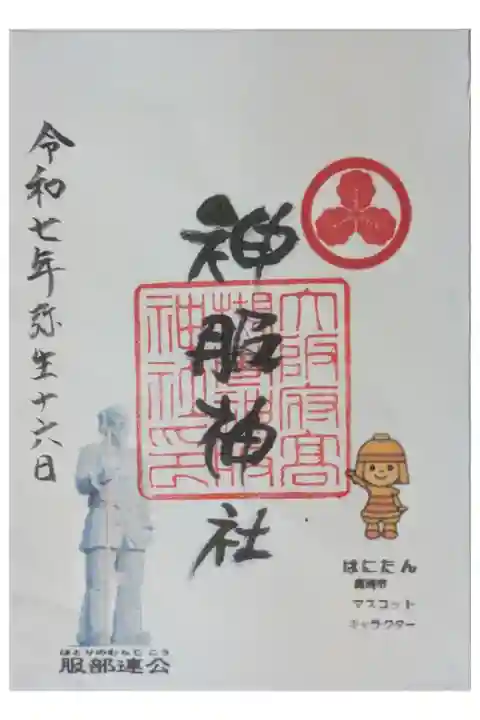 神服神社
令和七年弥生十六日
はにたん
高槻市
マスコット
キャラクター
はとりのむらじこう
服部連公